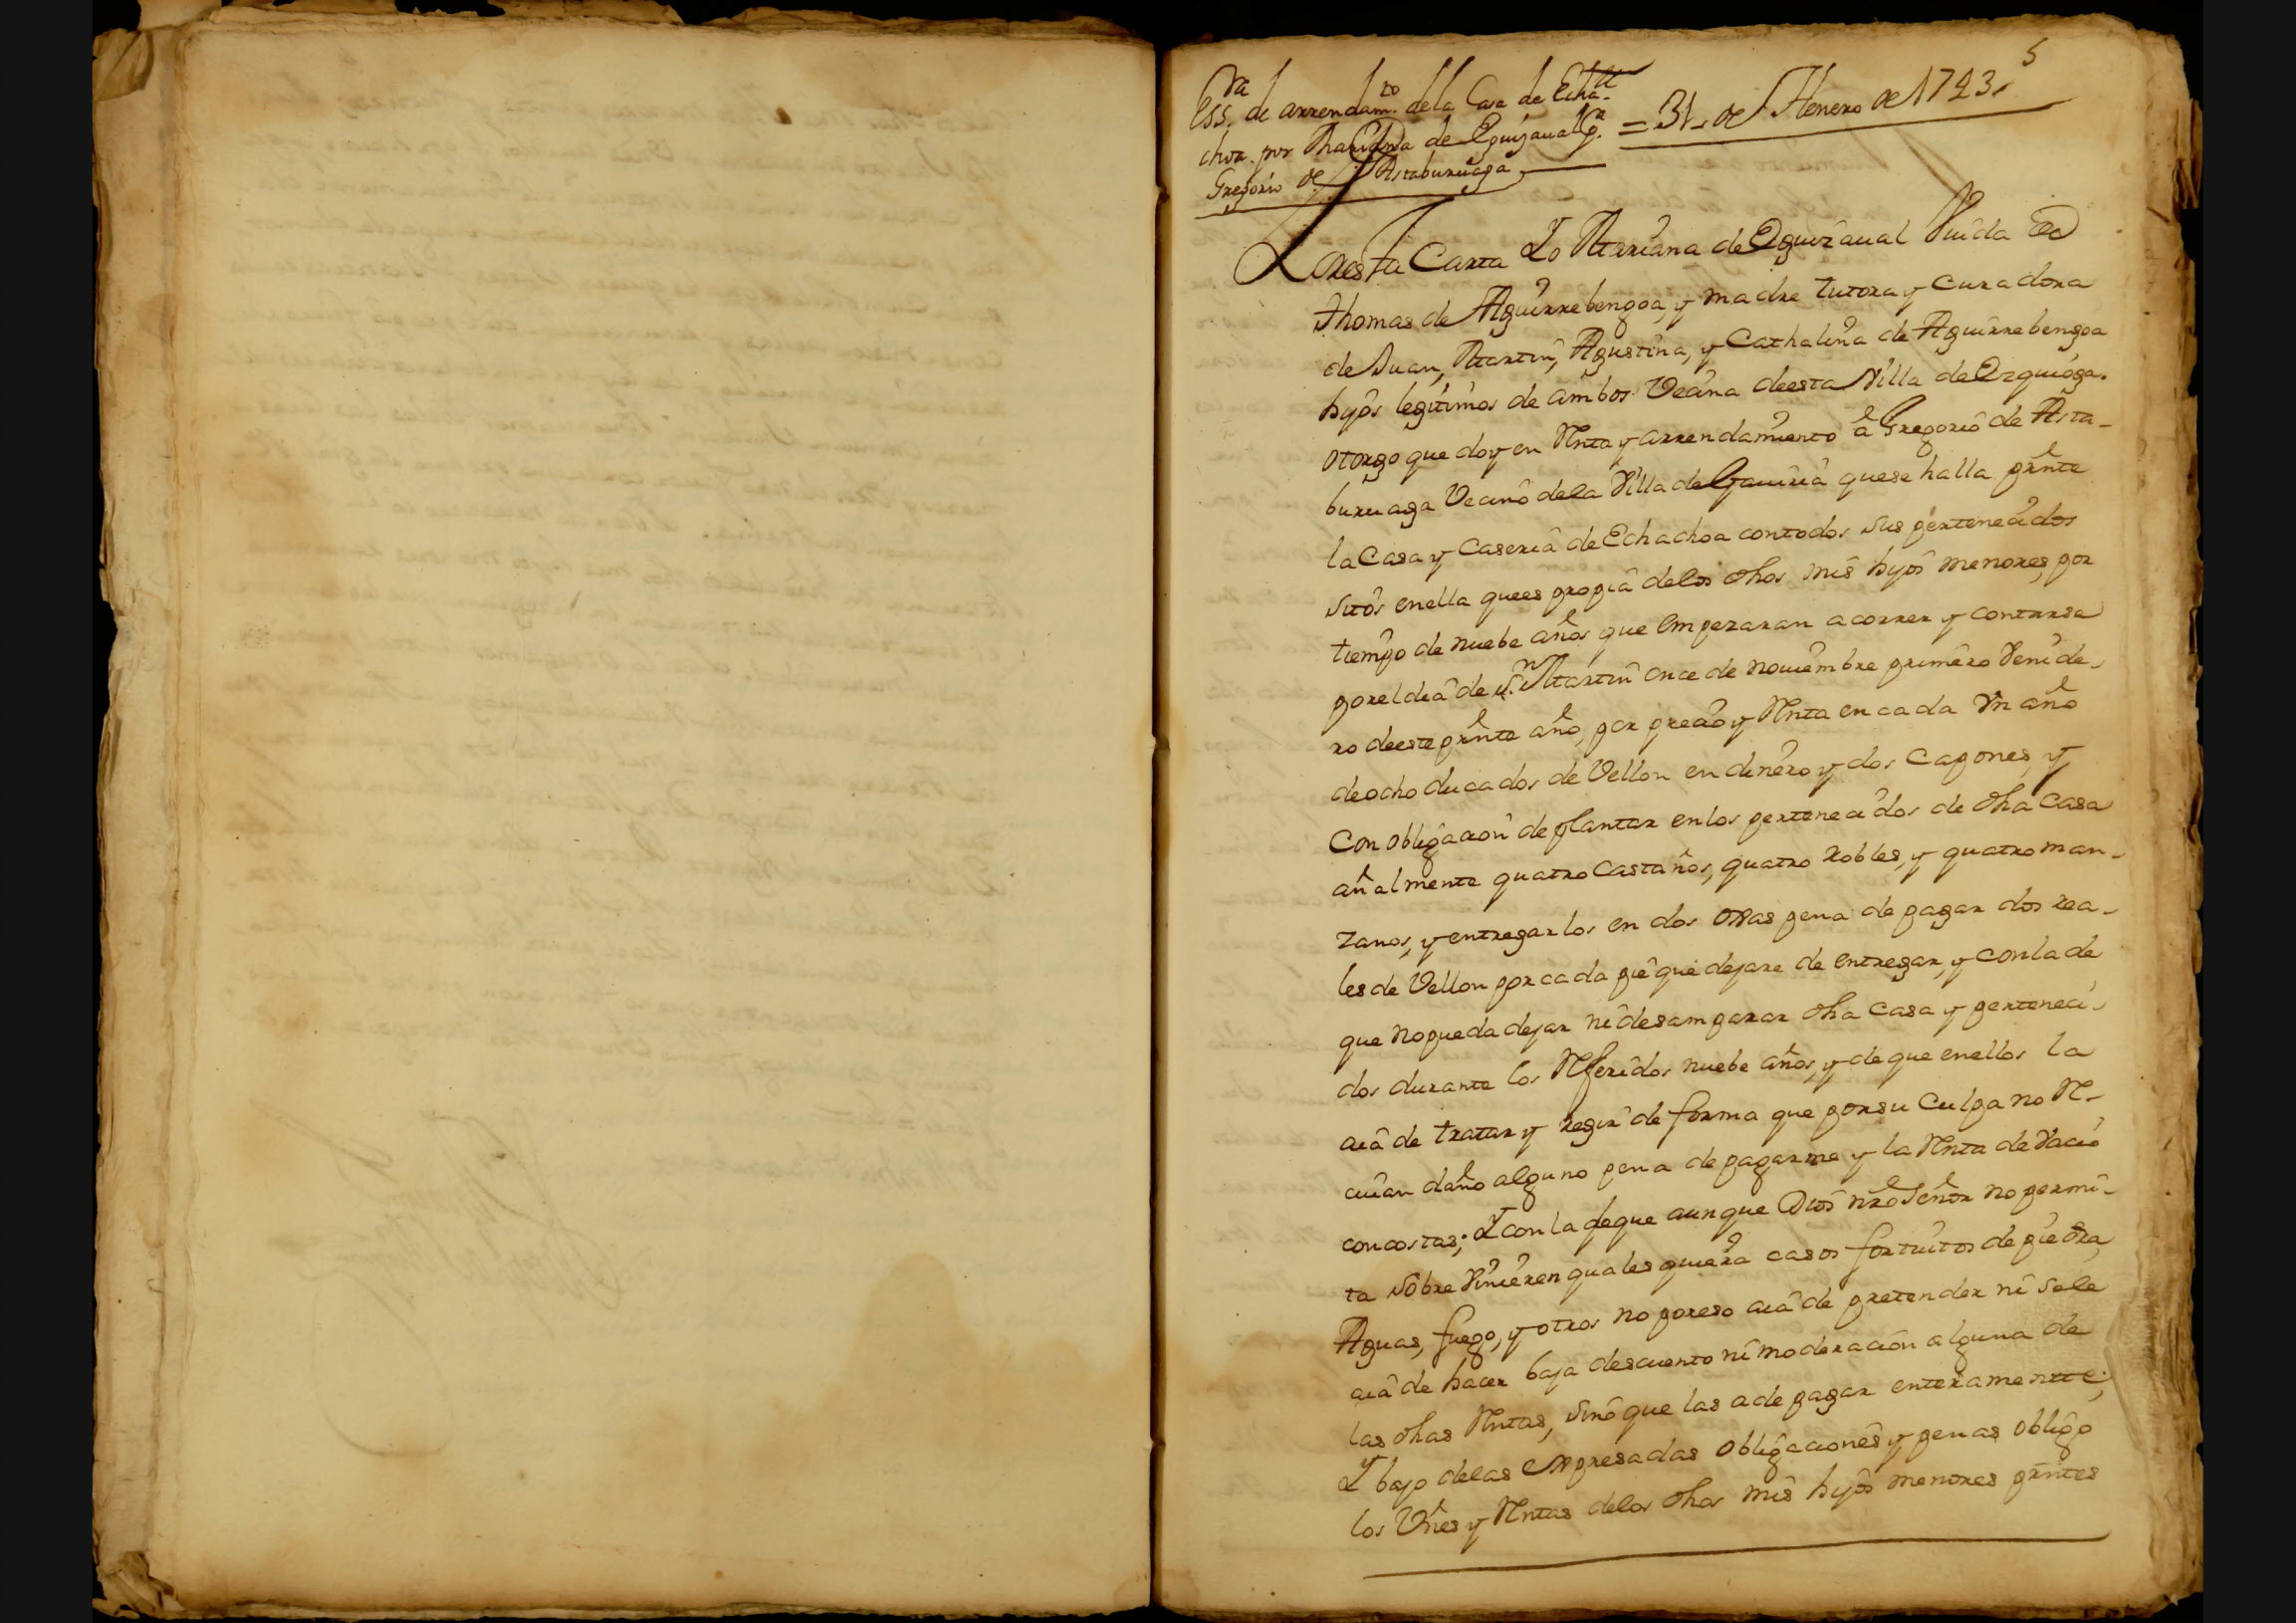 5
Ess.ra de arrendam.to de la Casa de Echa-
choa. por Mariana de Eguizaual
Gregorio de Astaburuaga
= 31,, de Henero de 1743,,
Por esta Carta Yo Mariana de Eguizaual Viuda de
Thomas de Aguirrebengoa, y madre tutora y Curadora
de Juan, Martin, Agustina, y Cathalina de Aguirrebengoa
hijos legitimos de ambos Vecina de esta Villa de Ezquioga.
otorgo que doy en Renta y arrendamiento a Gregorio de Asta-
buruaga Vecino de la Villa de Gauiria que se halla presnte
la Casa y Caseria de Echachoa con todos sus pertenecidos
sitos en ella que es propia de los dhos mis hijos menores, por
tiempo de nuebe años que empezaran a correr y contarse
por el dia de S.n Martin once de Nouiembre primero Venide-
ro de este presnte año, por precio y Renta en cada Vn año
de ocho ducados de Vellon en dinero y dos Capones, y
Con obligacion de plantar en los pertenecidos de dha Casa
añalmente quatro Castaños, quatro Robles, y quatro man-
zanos, y entregarlos en dos ojas pena de pagar dos rea-
les de Vellon por cada pie que dejare de entregar, y con la de
que no pueda dejar ni desamparar dha Casa y perteneci-
dos durante los Referidos nuebe años, y de que en ellos la
aia de tratar y regir de forma que por su Culpa no Re-
ciuan daño alguno pena de pagarme y la Renta de Vacio
con costas; Y con la de que aunque Dios nro Señor no permi-
ta sobre Vinieren qualesquiera casos fortuitos de piedra,
Aguas, fuego, y otros no por eso aia de pretender ni se le
aia de hacer baja descuento ni moderacion alguna de
las dhas Rentas, sino que las a de pagar enteramente;
Y bajo de las expresadas obligaciones y penas obligo
los Vnes y Rentas de los dhos mis hijos menores presntes